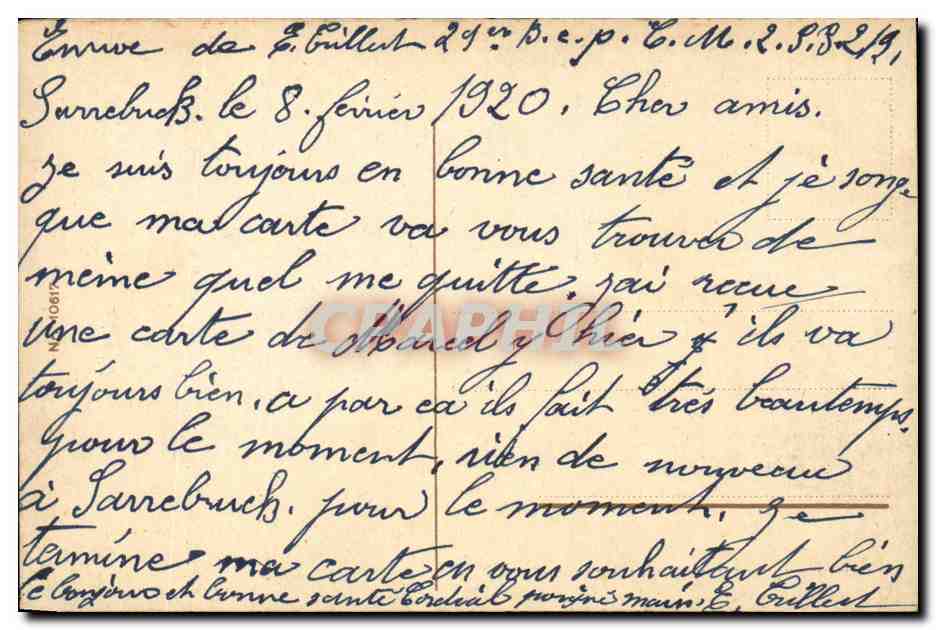 de E. Trillert 29er B.c.p. C.M.2.S.P.219.
Sarrebuck. le 8. février 1920. Cher amis.
Je suis toujours en bonne santé et jé songe
que ma carte va vous trouver de
même quel me quitte. jai recue
une carte de Marcel y hier y ils va
toujours bien. a par ca ils fait trés beautemps.
pour le moment, rien de nouveau
à Sarrebruck. pour le moment. Je
termine ma carte en vous souhaittant bién
le bonjour et bonne santé Cordial poigné main. E. Trillert
CRAPHIL